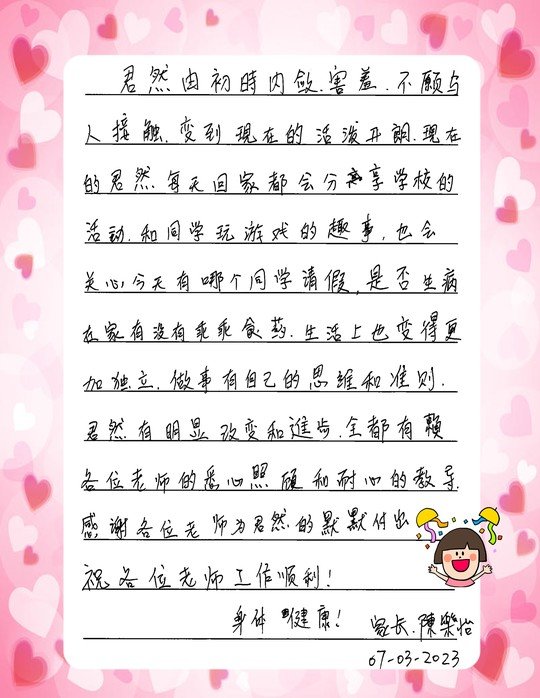 君然由初時内敛.害羞.不願与
人接触.变到现在的活泼开朗.现在
的君然每天回家都会分享学校的
活动.和同学玩游戏的趣事,也会
关心今天有哪个同学请假,是否生病
在家有没有乖乖食药.生活上也变得更
加独立.做事有自己的思維和准则.
君然有明显改变和進步.全都有賴
各位老师的悉心照顧和耐心的教导.
感谢各位老师为君然的默默付出
祝各位老师工作顺利!
身体健康!
家长.陳樂怡
07-03-2023